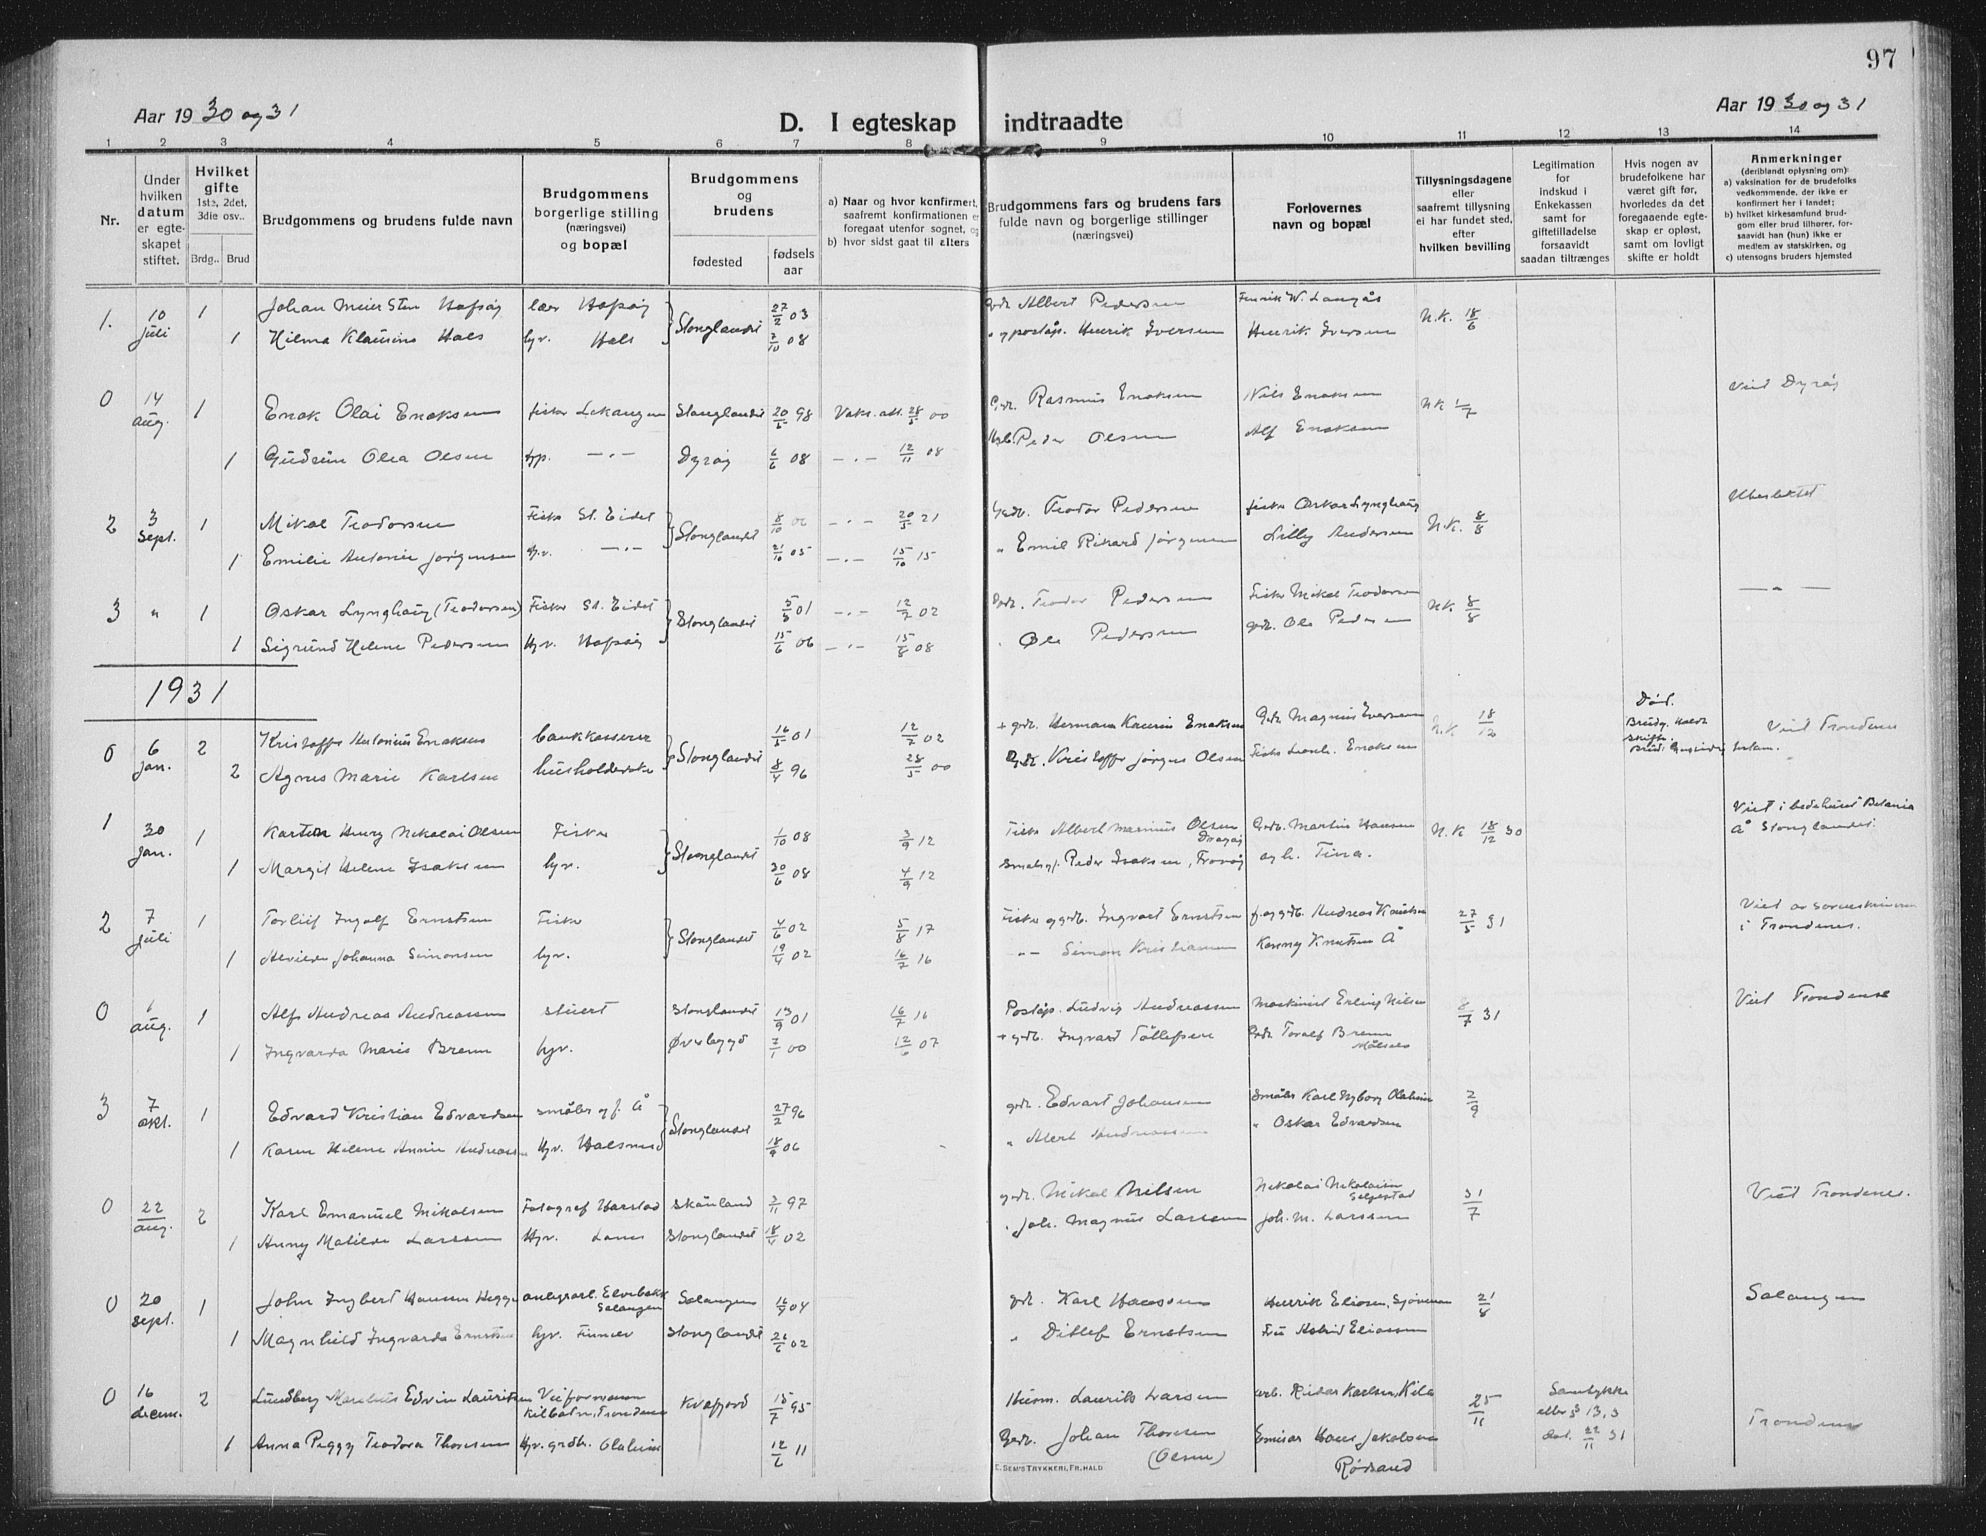 97
Aar 1930 og 31
Aar 1930 og 31
D. I egteskap indtraadte
1 2 3 4 5 6 7 8 9 10 11 12 13 14
Nr.
Under hvilken datum er egteskapet stiftet.
Hvilket gifte 1ste, 2det, 3die osv..
Brdg.. Brud
Brudgommens og brudens fulde navn
Brudgommens borgerlige stilling (næringsvei) og bopæl
Brudgommens og brudens
fødested
fødsels aar
a) Naar og hvor konfirmert, saafremt konfirmationen er foregaat utenfor sognet, og
b) hvor sidst gaat til alters
Brudgommens fars og brudens fars fulde navn og borgerlige stillinger (næringsvei)
Forlovernes navn og bopæl
Tillysningsdagene eller saafremt tillysning ei har fundet sted, efter hvilken bevilling
Legitimation for indskud i Enkekassen samt for giftetilladelse forsaavidt saadan tiltrænges
Hvis nogen av brudefolkene har været gift før, hvorledes da det foregaaende egteskap er opløst, samt om lovligt skifte er holdt
Anmerkninger (deriblandt oplysning om):
a) vaksination for de brudefolks vedkommende, der ikke er konfirmert her i landet;
b) hvilket kirkesamfund brudgom eller brud tilhører, forsaavidt han (hun) ikke er medlem av statskirken, og
c) utensogns bruders hjemsted
1. 10 juli 1 Johan Meier Sten Hofsøy Hofsøy Stonglandet 27/2 03 Albert Pedersen Henrik W. Langås N.K. 18/6
1 Hilma Klausine Hals hv. Hals 3/10 08 Henrik Iversen Henrik Iversen
0 14 aug. 1 Enok Olai Enoksen fisker Lekangen Stonglandet 20/5 98 Vaks. att. 28/5 00 Rasmus Enoksen Nils Enoksen N.K. 1/7 Viet Dyrøy
1 Gudrun Olea Olsen —.— Dyrøy 6/6 08 —.— 12/11 08 Peder Olsen Alf Enoksen
2 3 sept. 1 Mikal Teodorsen Fisker St. Eidet Stonglandet 8/10 —.— 20/5 21 Teodor Pedersen fisker Oskar Lynghaug N.K. 8/8
1 Emilie Antonie Jørgensen —.— 21/10 05 —.— 15/10 15 " Emil Rikard Jørgensen Lilly Andersen
3 " 1 Oskar Lynghaug (Teodorsen) Fisker St. Eidet Stonglandet 5/5 01 —.— 12/7 02 Teodor Pedersen Fisker Mikal Teodorsen N.K. 8/8 — " —
1 Sigrund Helene Pedersen Hv. Hofsøy 15/6 06 —.— 15/8 08 Ole Pedersen gdr. Ole Pedersen
1931
0 6 jan. 2 Kristoffer Antonius Enoksen bankkasserer Stonglandet 16/5 01 12/7 02 + gdr. Hermann Kaurin Enoksen Gdr. Magnus Iversen N.K. 18/12 Død. Viet Trondenes
2 Agnes Marie Karlsen husholderske 8/4 96 28/5 00 Gdr. Kristoffer Jørgen Olsen Enoksen
1 30 jan. 1 Karsten Henry Nikolai Olsen Fisker Stonglandet 1/10 08 3/9 12 Fisker Albert Marinus Olsen Gdr. Martin Hansen N.K. 18/12 30 Viet i bedehuset Betania Å Stonglandet.
1 Margit Helene Isaksen hv. 30/6 08 4/9 12 Peder Isaksen, og h. Tina.
2 7 juli 1 Torleif Ingolf Ernstsen Fisker Stonglandet 4/6 02 5/8 17 Fisker og gdb. Ingvart Ernstsen f. og gdb. Andreas Knutsen 27/5 31 Viet av sorenskriveren i Trondenes.
1 Alvilde Johanna Simonsen hv. 19/4 02 16/7 16 Simon Kristiansen Knutsen Å
0 1 aug. 1 Alf Andreas Andreassen stuert Stonglandet 13/9 01 16/7 16 Ludvig Andreassen Maskinist Erling Nilsen 8/7 31 Viet Trondenes
1 Ingvarda Marie Brenn hv. Øverbygd 7/1 00 12/6 07 + gdb. Ingvard Tollefsen Gdr. Toralf Brenn Målselv
3 7 okt. 1 Edvard Kristian Edvardsen småbr. og f. Å Stonglandet 27/2 96 gdr. Edvart Johansen Småbr. Karl Olaheim 2/9
1 Karen Helene Annie Andreassen Hv. Halsnes 18/9 06 Andreassen " Oskar Edvardsen
0 22 aug. 2 Karl Emanuel Mikalsen Fotograf Harstad Skånland 3/11 97 gdr. Mikal Nilsen Nikolai Nikolaisen 31/7 Viet Trondenes.
1 Anny Matilde Larssen Hv. Lanes Stonglandet 18/4 02 Joh. Magnus Larssen Joh. M. Larssen
0 20 sept. 1 John Ingbert Hansen Hegge anlegsarb. Elvebakk Salangen Salangen 16/9 04 gdr. Karl Hanssen Henrik Eliasen, Sjøvegan 21/8 Salangen
1 Magnhild Ingvarda Ernstsen hv. Finnes Stonglandet 26/6 02 " Ditlef Ernstsen Fru Astrid Eliassen
0 16 decem. 2 Lundberg Edvin Lauritsen Veiformann Kilbotn, Trondenes Kvæfjord 15/7 95 Laurits Larsen arb. Reidar Karlsen, Kila 25/11 Samtykke efter § 13, 3 dat. 22/11 31 Trondenes
1 Anna Peggy Teodora Thoresen Hv. Olaheim 12/6 11 Gdr. Johan Thoresen (Olsen) Emisær Hans Jakobsen Rødsand
E. SEM'S TRYKKERI, FR.HALD